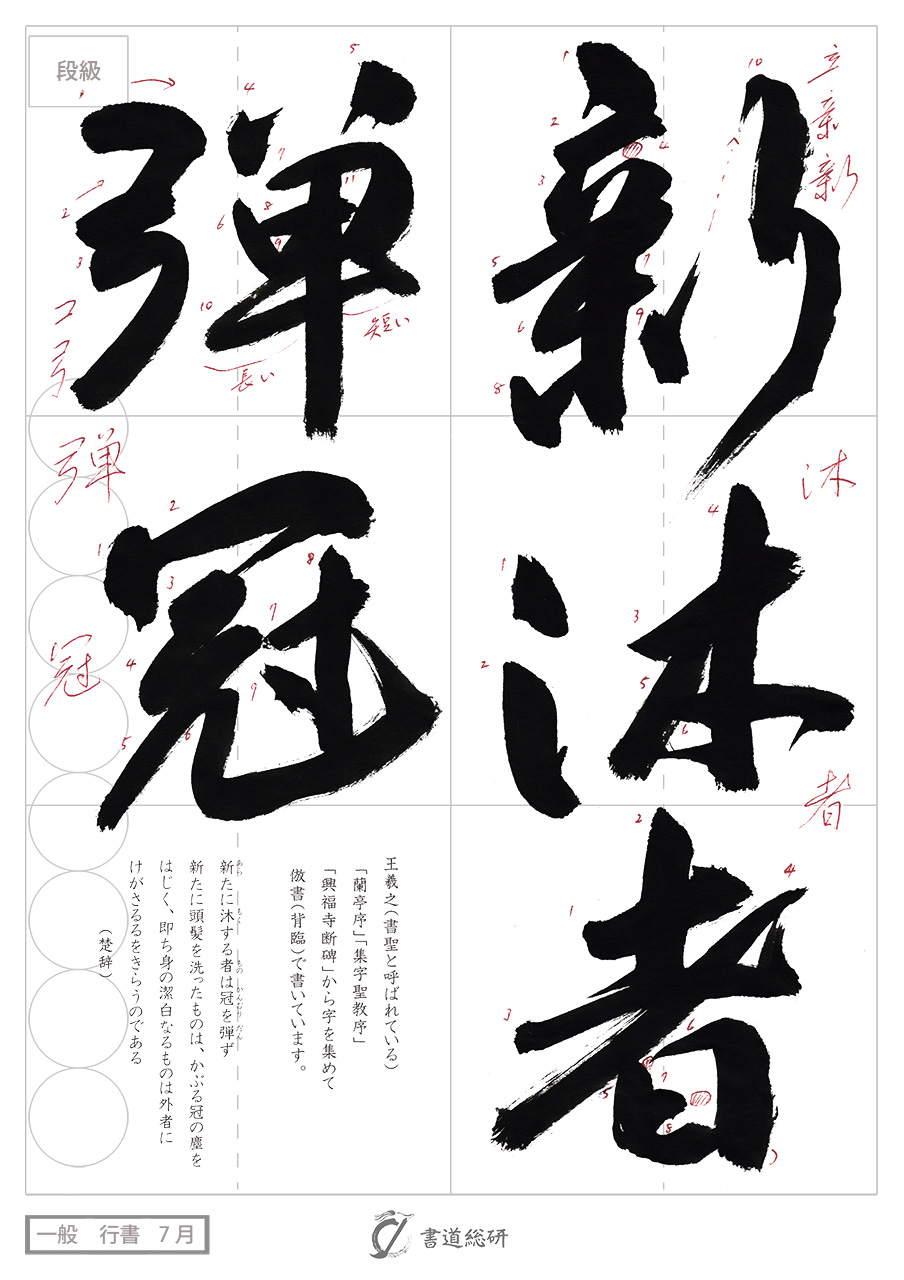 新沐者
弾冠
段級
立
亲
新
沐
者
短い
長い
コ
弓
弾
冠
王羲之(書聖と呼ばれている)
「蘭亭序」「集字聖教序」
「興福寺断碑」から字を集めて
倣書(背臨)で書いています。
新たに沐する者は冠を弾ず
新たに頭髪を洗ったものは、かぶる冠の塵を
はじく、即ち身の潔白なるものは外者に
けがさるるをきらうのである
(楚辞)
一般 行書 7月
書道総研